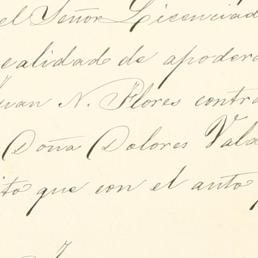 el Señor Licenciad
ealidad de apodera
Juan N. Flores contra
Doña Dolores Vals
ito que con el auto